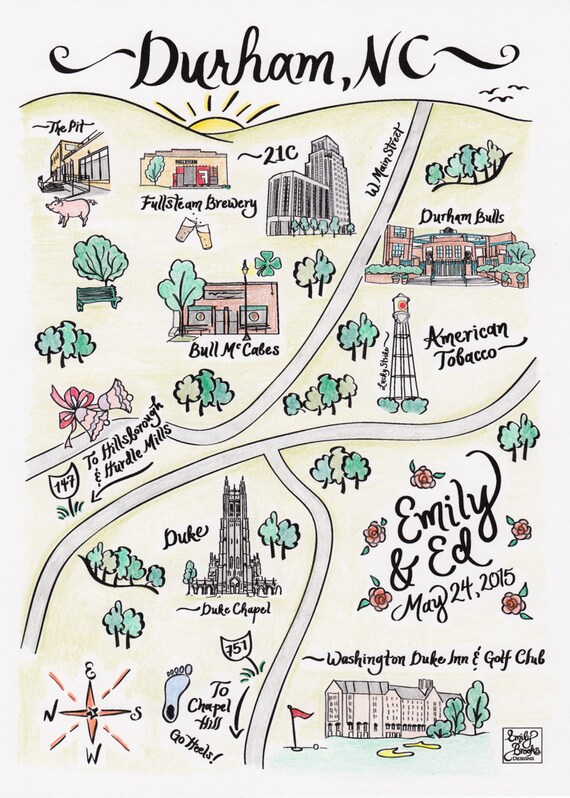 Durham, NC
The Pit
21C
W. Main Street
FULLSTEAM
Fullsteam Brewery
Durham Bulls
Bull McCabes
American
Tobacco
Lucky Strike
To Hillsborough
& Hurdle Mills
147
Duke
Duke Chapel
Emily
& Ed
May 24, 2015
751
To
Chapel
Hill
Go Heels!
Washington Duke Inn & Golf Club
E
N
S
W
Emily
Brooks
DESIGNS